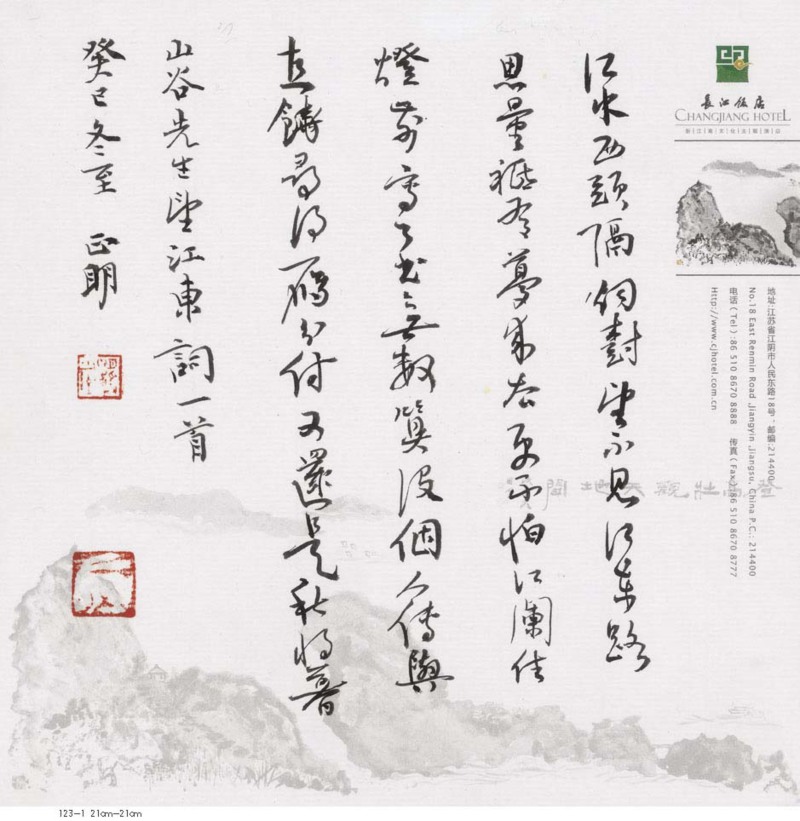 長江飯店
CHANGJIANG HOTEL
地址:江苏省江阴市人民东路18号 邮编:214400
No.18 East Renmin Road ,Jiangyin ,Jiangsu, China P.C.: 214400
电话(Tel):86 510 8670 8888 传真(Fax):86 510 8670 8777
Http://www.cjhotel.com.cn
登高壯觀天地間
江水西頭隔烟樹望不見江東路
思量祗有夢來去更不怕江闌住
燈前寫了書無數算沒個人傳與
直饒尋得雁分付又還是秋將暮
山谷先生望江東詞一首
癸巳冬至 正明
123-1 21cm-21cm